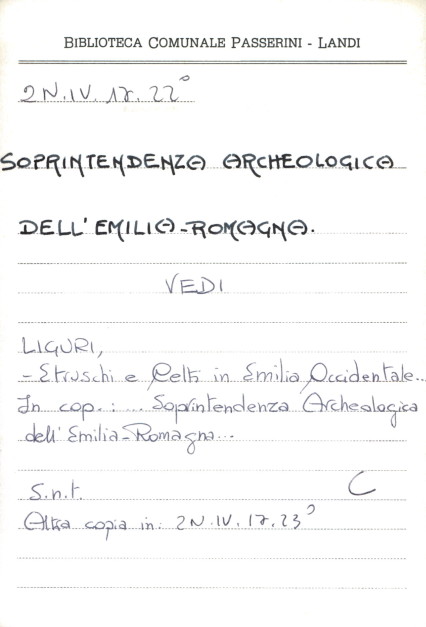 BIBLIOTECA COMUNALE PASSERINI - LANDI
2N.IV.17.22°
SOPRINTENDENZA ARCHEOLOGICA
DELL'EMILIA-ROMAGNA.
VEDI
LIGURI,
- Etruschi e Celti in Emilia Occidentale...
In cop.: ... Soprintendenza Archeologica
dell'Emilia-Romagna...
S.n.t. C
Altra copia in: 2N.IV.17.23°